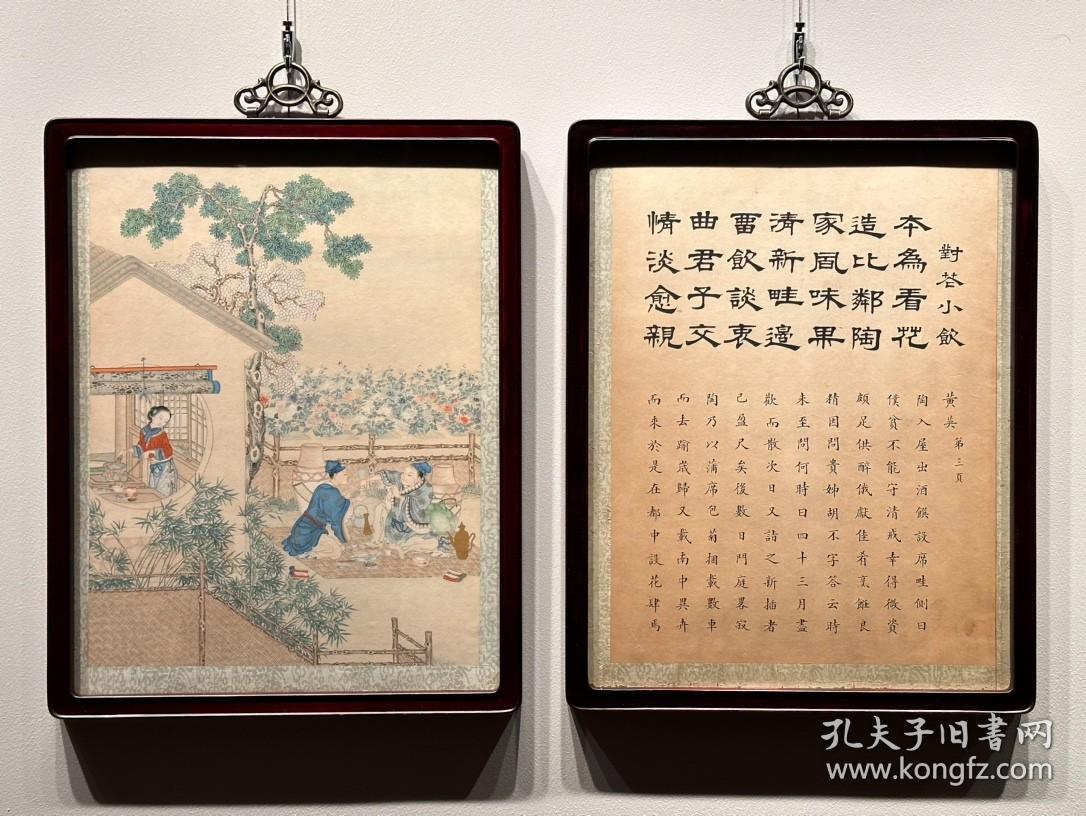 對花小飲
本為看花
造比鄰陶
家風味果
清新畦邊
畱飲談衷
曲君子交
情淡愈親
黄英 第三頁
陶入屋出酒饌設席畦側曰
僕貧不能守清戒幸得微資
頗足供醉俄獻佳肴烹飪良
精因問貴姊胡不字答云時
未至問何時曰四十三月盡
歡而散次日又詣之新插者
已盈尺矣後數日門庭畧寂
陶乃以蒲席包菊捆載數車
而去踰歲歸又載南中異卉
而來於是在都中設花肆馬
孔夫子旧书网
www.kongfz.com